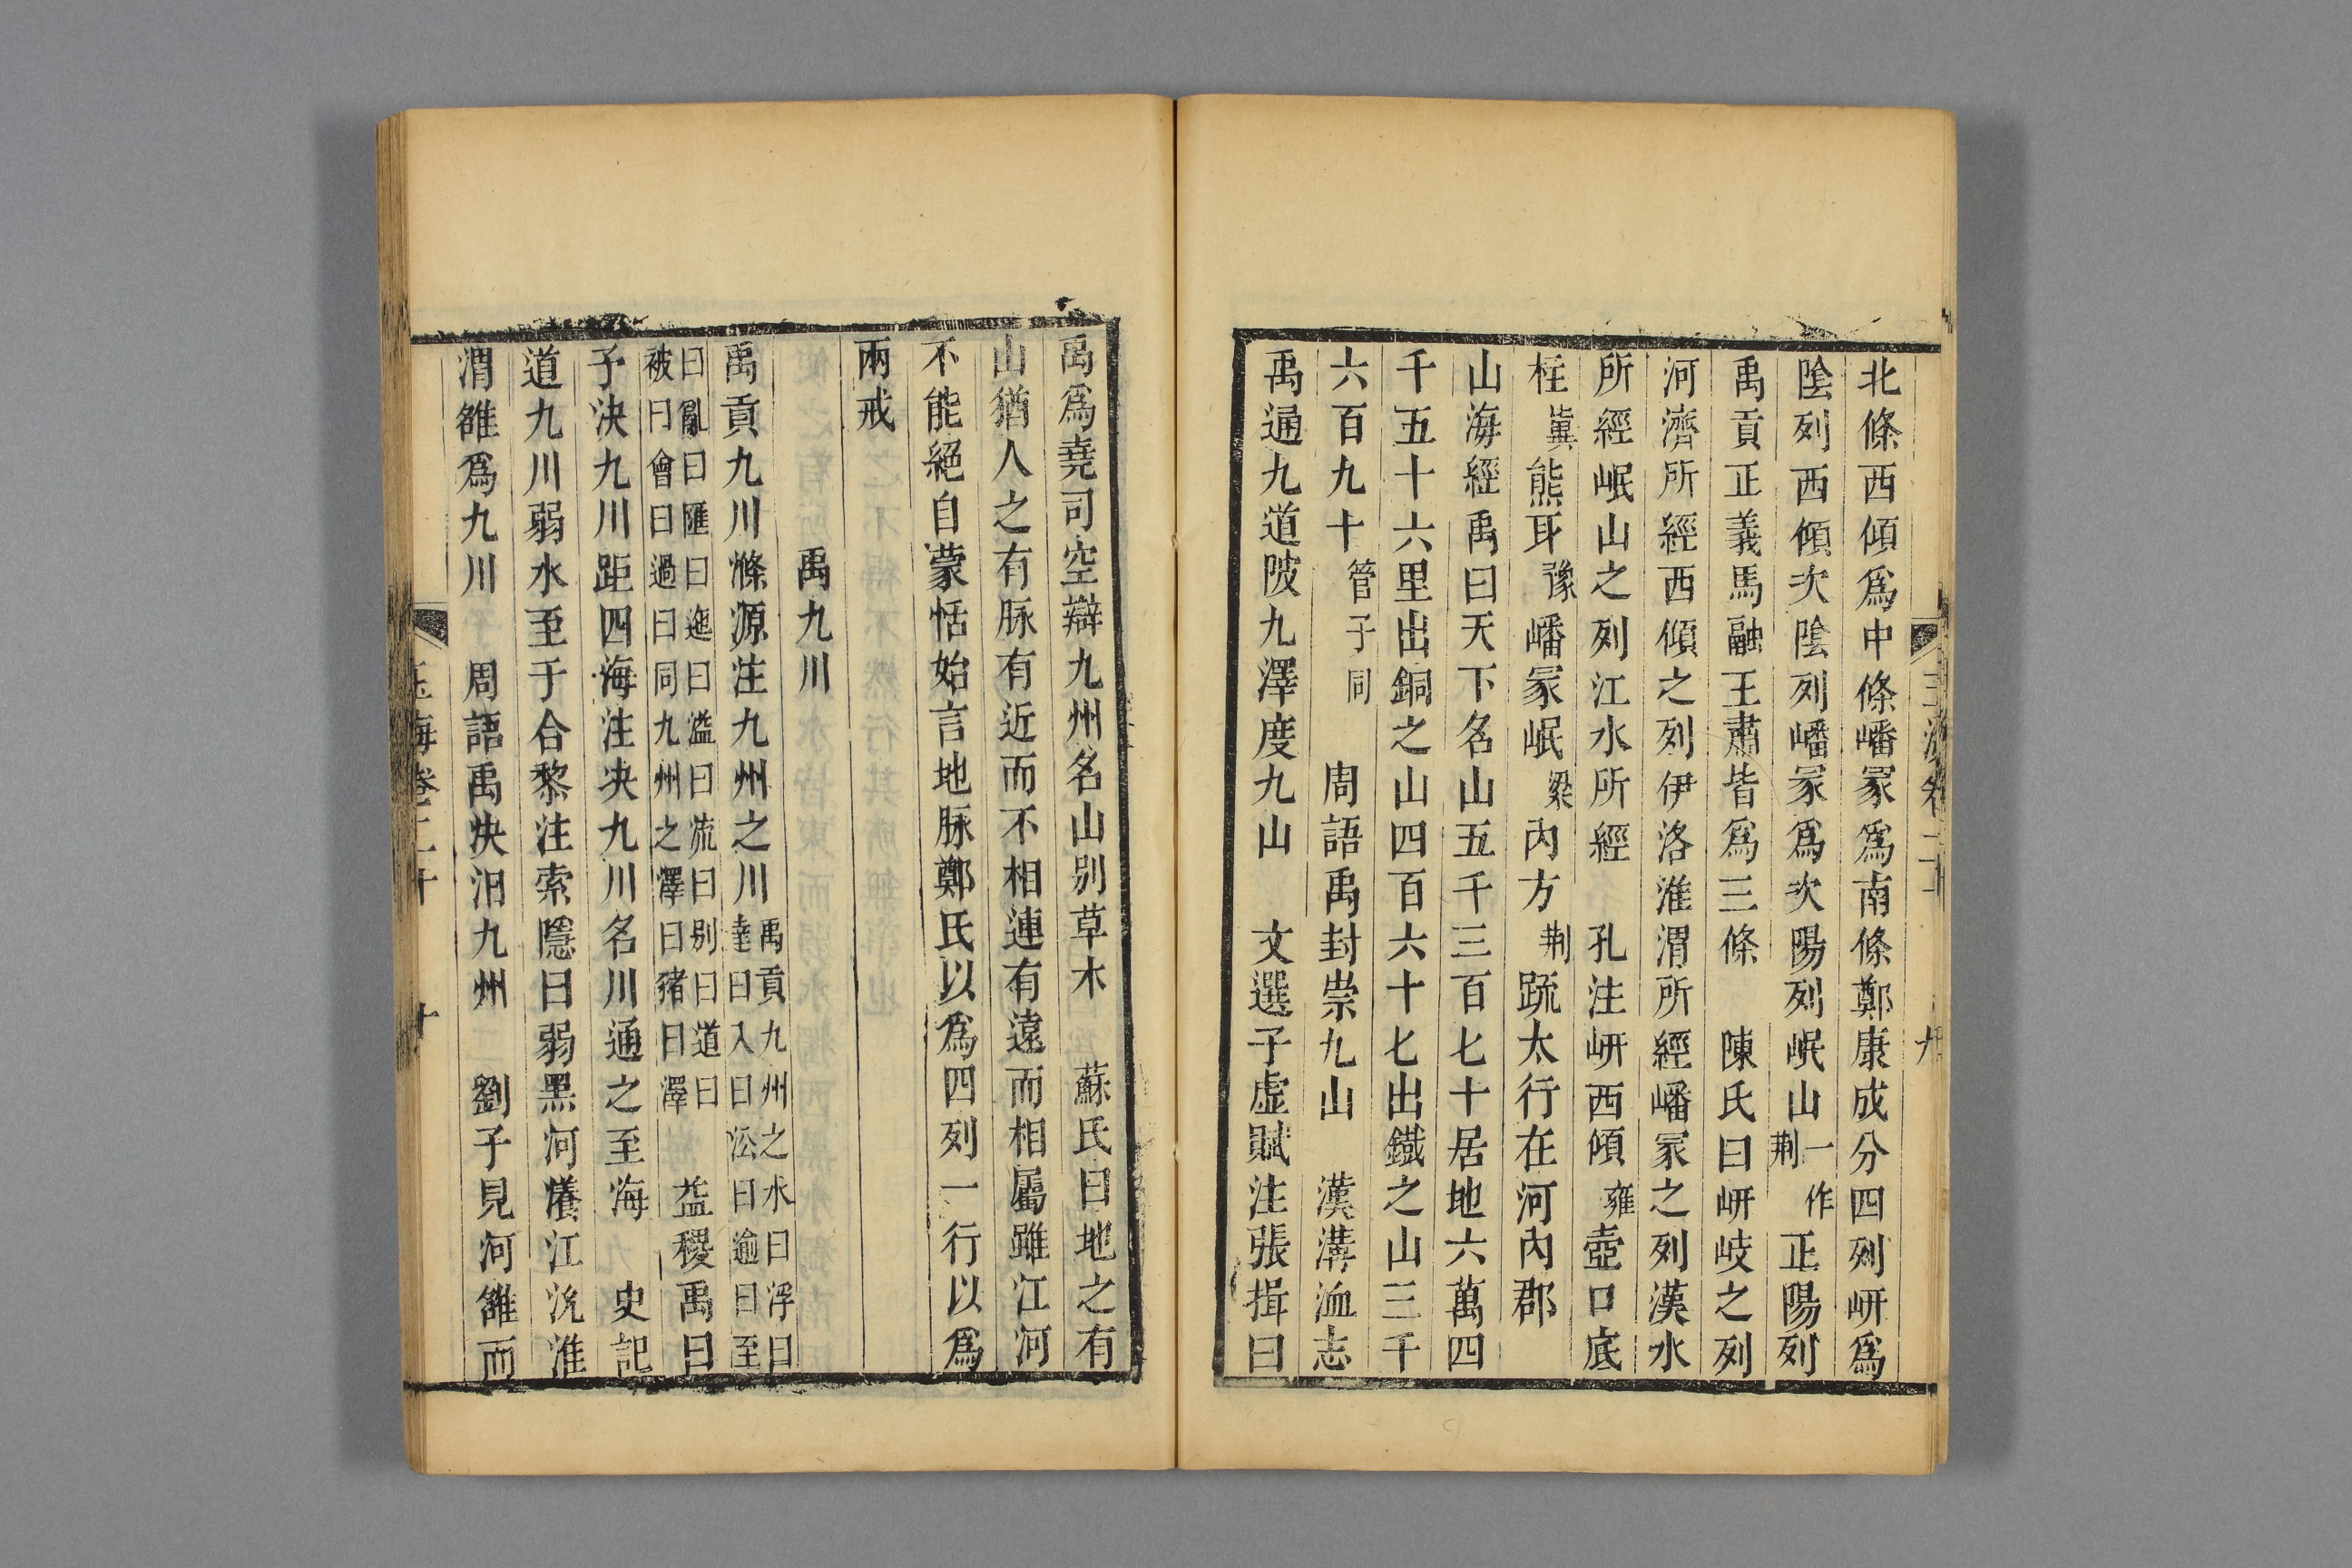 北條西傾爲中條嶓冢爲南條鄭康成分四列岍爲
陰列西傾次陰列嶓冢爲次陽列岷山一作荆正陽列
禹貢正義馬融王肅皆爲三條　陳氏曰岍岐之列
河濟所經西傾之列伊洛淮渭所經嶓冢之列漢水
所經岷山之列江水所經　孔注岍西傾雍壺口底
柱冀熊耳豫嶓冢岷梁内方荆䟽太行在河内郡
山海經禹曰天下名山五千三百七十居地六萬四
千五十六里出銅之山四百六十七出鐵之山三千
六百九十管子同　周語禹封崇九山　漢溝洫志
禹通九道陂九澤度九山　文選子虚賦注張揖曰
禹爲堯司空辯九州名山别草木　蘇氏曰地之有
山猶人之有脉有近而不相連有遠而相屬雖江河
不能絕自蒙恬始言地脉鄭氏以爲四列一行以爲
兩戒
禹九川
禹貢九川滌源注九州之川禹貢九州之水曰浮曰
逹曰入曰㳂曰逾曰至
曰亂曰匯曰迤曰溢曰流曰别曰道曰
被曰會曰過曰同九州之澤曰豬曰澤　益稷禹曰
予決九川距四海注决九川名川通之至海　史記
道九川弱水至于合黎注索隱曰弱黑河瀁江沇淮
渭雒爲九川　周語禹決汨九州　劉子見河雒而
玉海卷二十
十